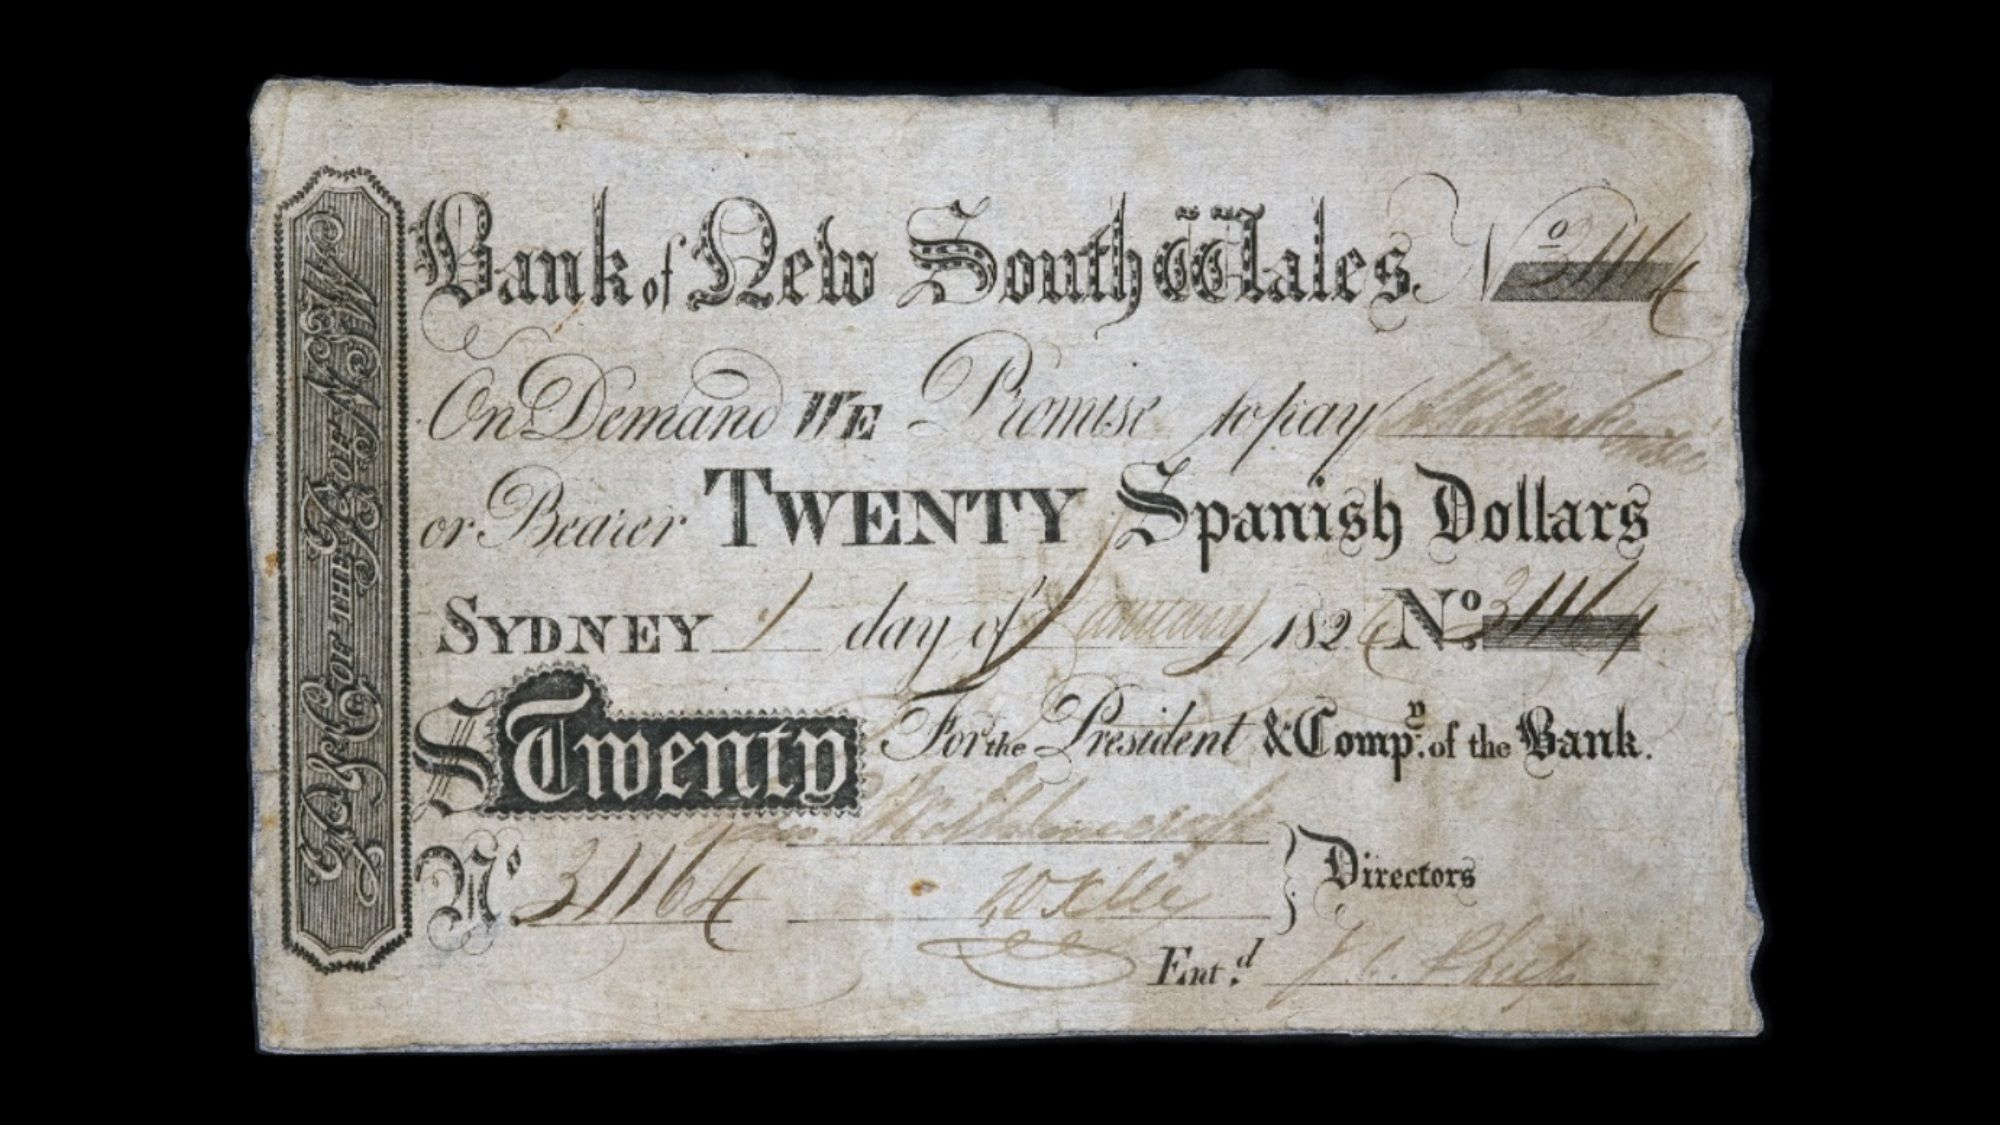 P. & C. OF THE B. OF N.S.W.
Bank of New South Wales. No 31164
On Demand WE Promise to pay
or Bearer TWENTY Spanish Dollars
SYDNEY 1 day of January 1826 No. 31164
$ Twenty For the President & Compy. of the Bank.
No. 31164
Directors
Ent.d